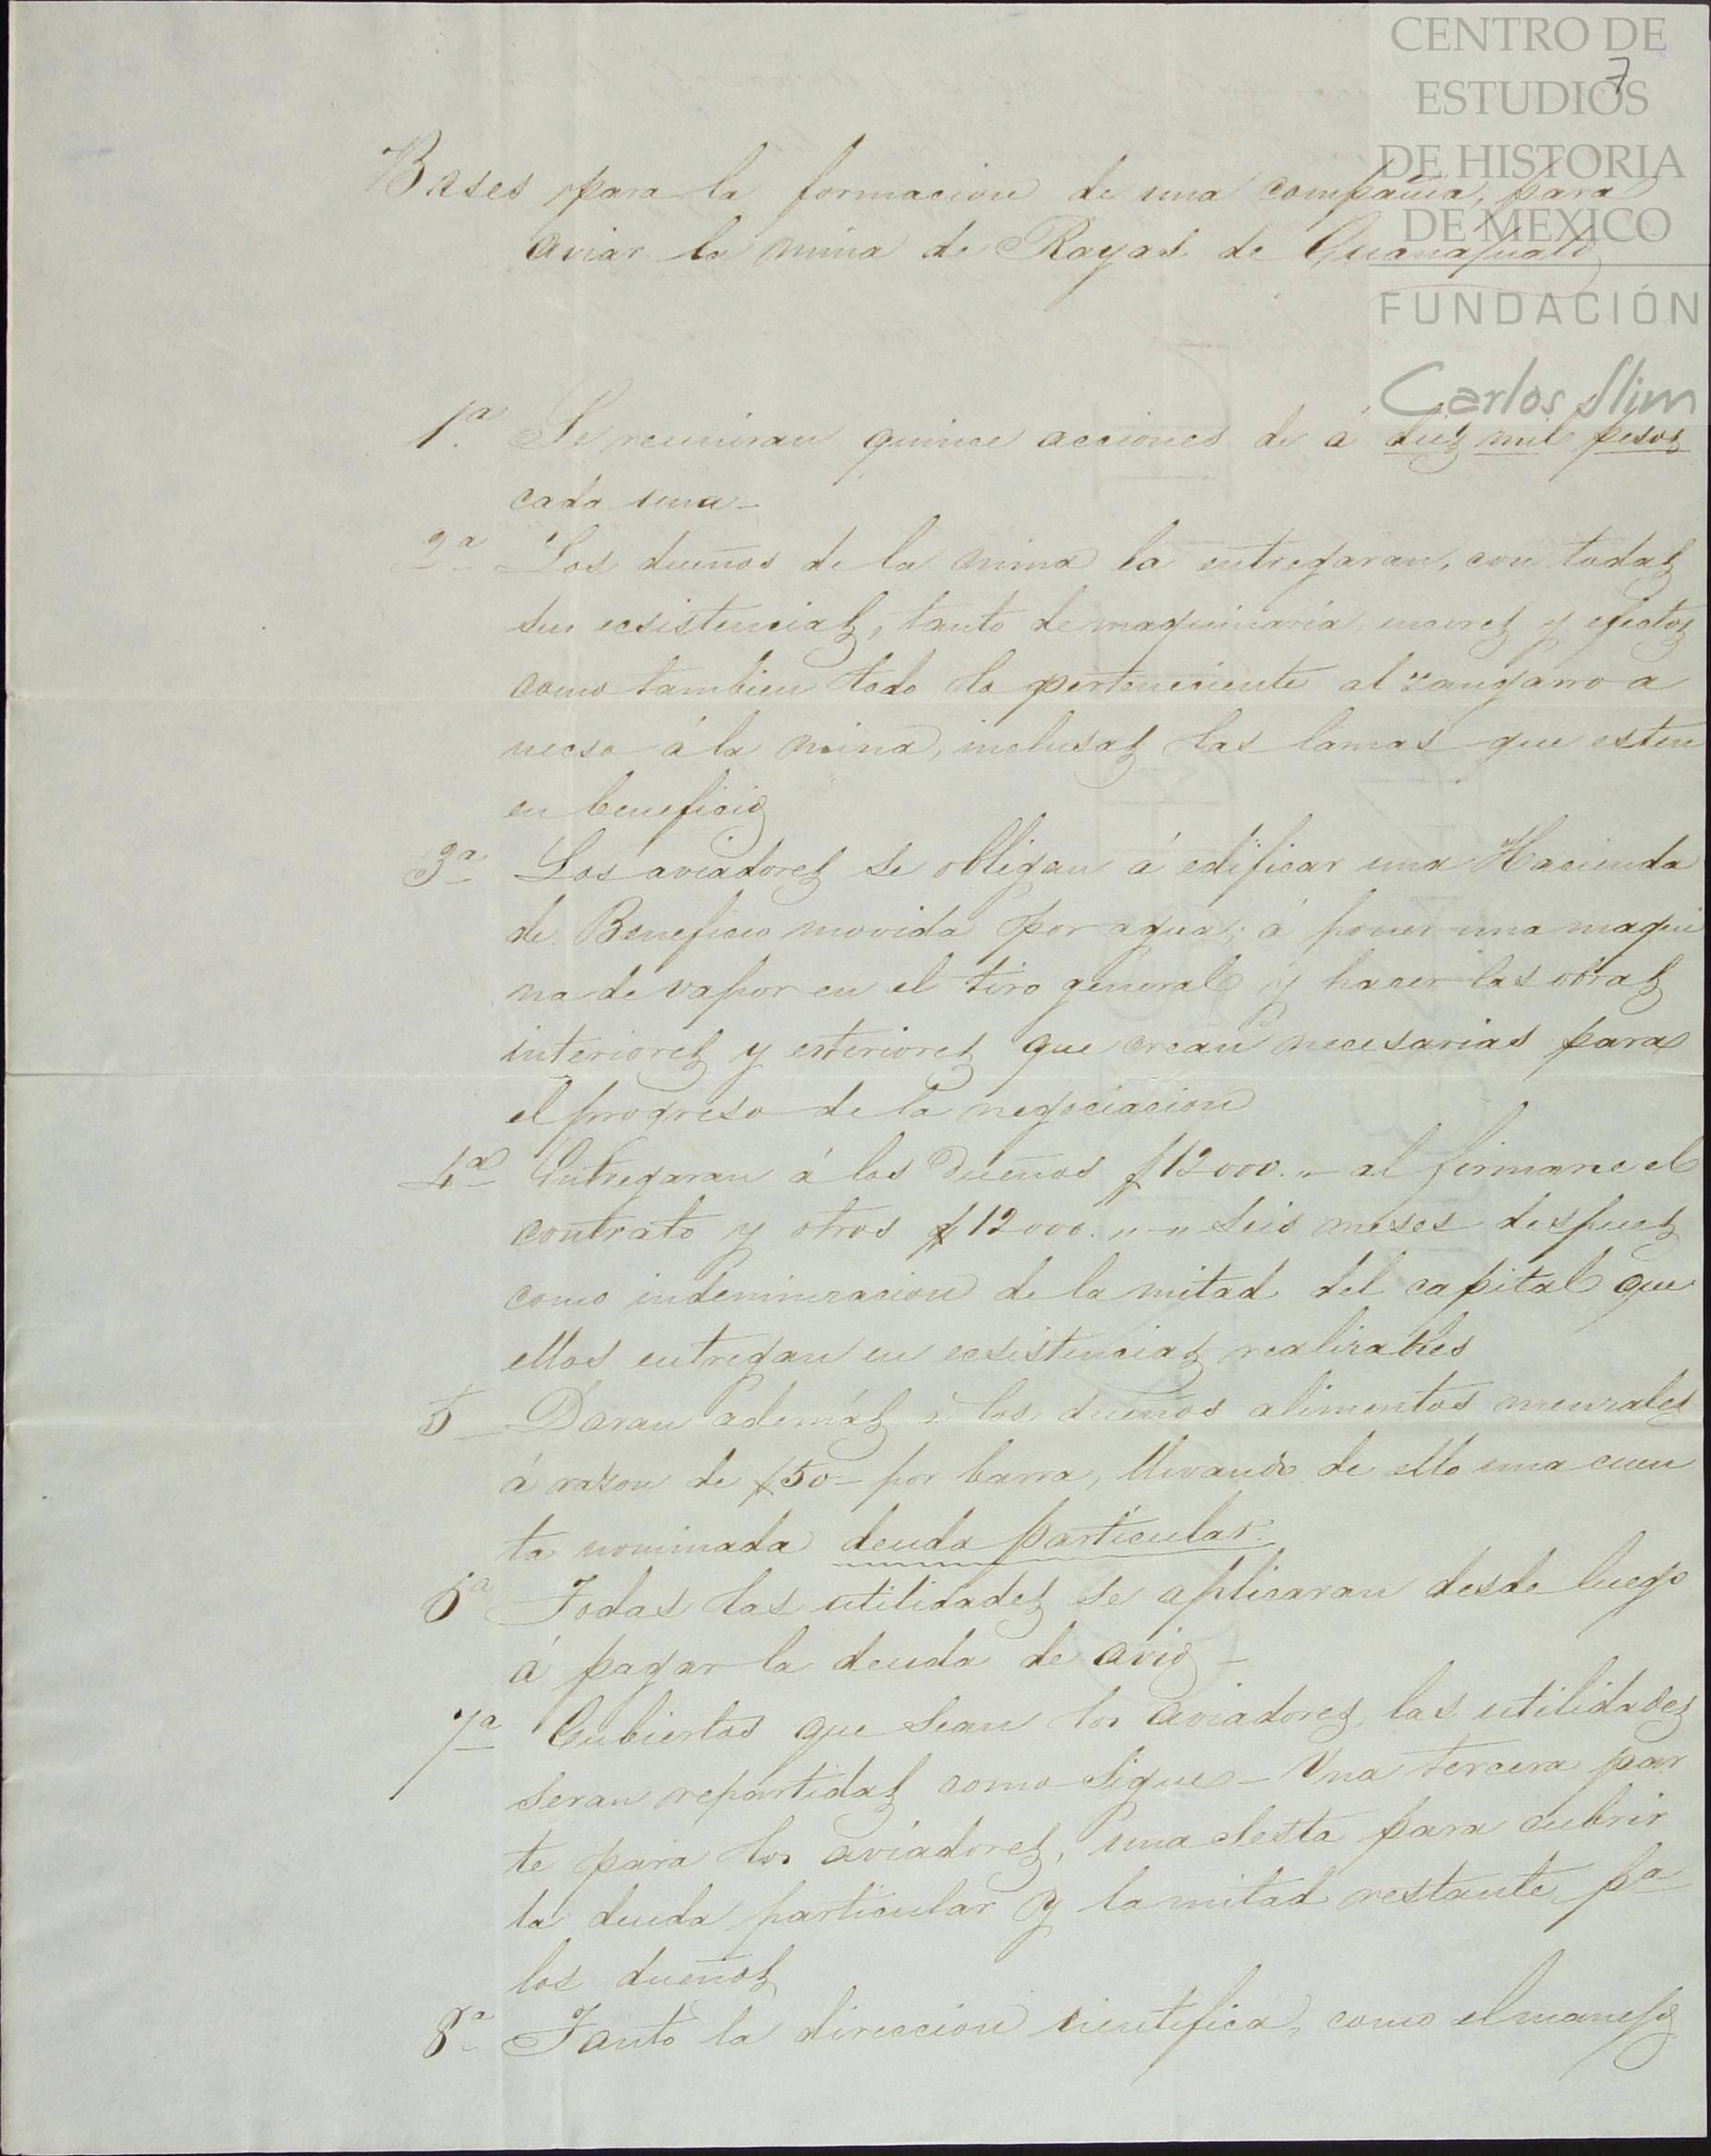 CENTRO DE
ESTUDIOS
DE HISTORIA
DE MEXICO
FUNDACIÓN
Carlos Slim
7
Bases para la formacion de una compañia, para
aviar la mina de Rayas de Guanajuato
1ª. Se reuniran quince acciones de á diez mil pesos
cada una -
2ª Los dueños de la mina la entregaran, con todas
sus ecsistencias, tanto de maquinaria, enseres y efectos
como tambien todo lo perteneciente al zangarro a
necso á la mina, inclusas las lamas que esten
en beneficio
3ª Los aviadores se obligan á edificar una Hacienda
de Beneficio movida por agua; á poner una maqui
na de vapor en el tiro general y hacer las obras
interiores y esteriores que crean necesarias para
el progreso de la negociacion
4ª Entregaran á los Dueños $12000.,, - al firmarse el
contrato y otros $12000.,, - ,, seis meses despues
como indemnizacion de la mitad del capital que
ellos entregan en ecsistencias realizables
5 Daran además á los dueños alimentos mensales
á razon de $50 - por barra, llevando de ello una cuen
ta nominada deuda particular.
6ª Todas las utilidades se aplicaran desde luego
á pagar la deuda de avio -
7ª Cubiertos que sean los aviadores, las utilidades
seran repartidas como sigue - Una tercera par
te para los aviadores, una sesta para cubrir
la deuda particular y la mitad restante pª
los dueños
8ª Tanto la direccion cientifica, como el manejo